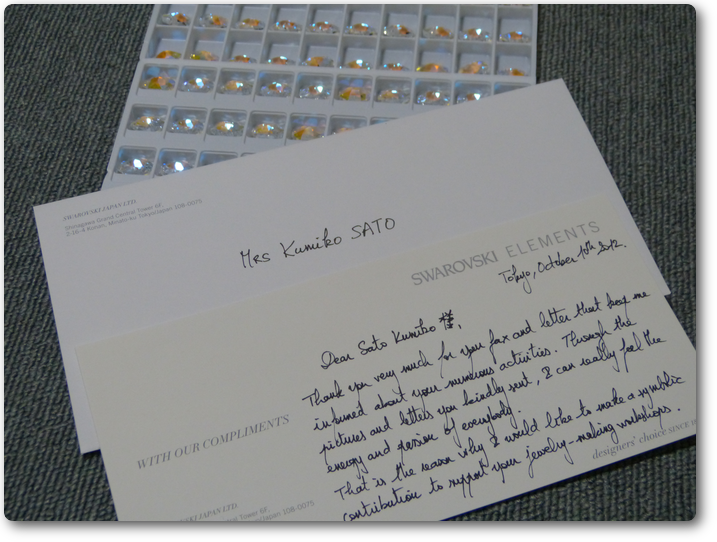 SWAROVSKI JAPAN LTD.
Shinagawa Grand Central Tower 6F,
2-16-4 Konan, Minato-ku Tokyo/Japan 108-0075
Mrs Kumiko SATO
SWAROVSKI ELEMENTS
Tokyo, October 10th 2012.
Dear Sato Kumiko 様,
Thank you very much for your fax and letter that keep me
informed about your numerous activities. Through the
pictures and letters you kindly sent, I can really feel the
energy and passion of everybody.
That is the reason why I would like to make a symbolic
contribution to support your jewelry-making workshops.
WITH OUR COMPLIMENTS
designers' choice SINCE
SWAROVSKI JAPAN LTD.
Tower 6F,
Tokyo/Japan 108-0075